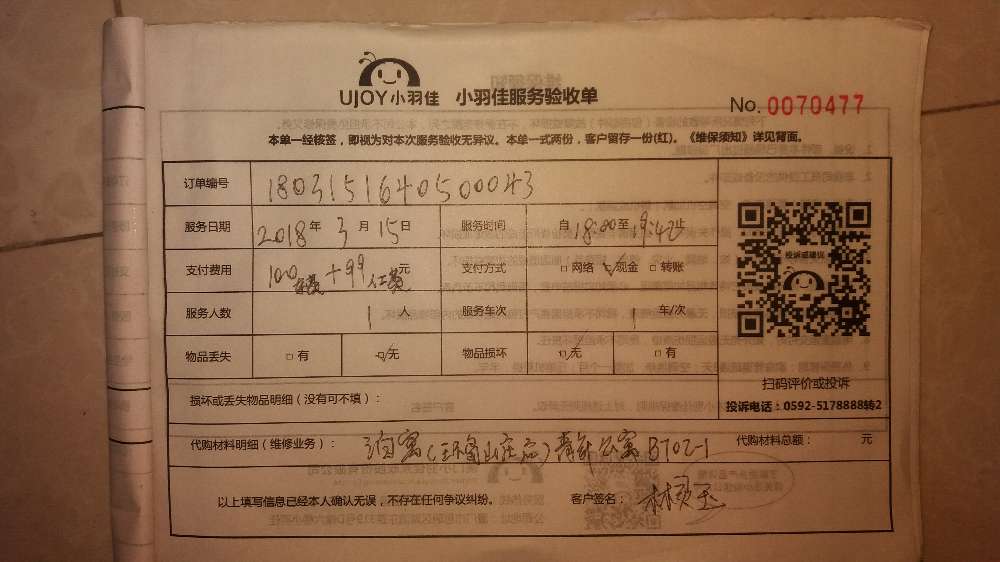 UJOY小羽佳 小羽佳服务验收单
No. 0070477
本单一经核签，即视为对本次服务验收无异议。本单一式两份，客户留存一份(红)。《维保须知》详见背面。
订单编号 180315164050043
服务日期 2018年3月15日 服务时间 自18:00至19:42止
支付费用 100 +99 元 支付方式 □网络 ☑现金 □转账
服务人数 1人 服务车次 1车/次
物品丢失 □有 ☑无 物品损坏 ☑无 □有
投诉或建议
扫码评价或投诉
损坏或丢失物品明细（没有可不填）：
投诉电话：0592-5178888转2
代购材料明细（维修业务）： 公寓 B702-1 代购材料总额： 元
以上填写信息已经本人确认无误，不存在任何争议纠纷。 客户签名：林 玉